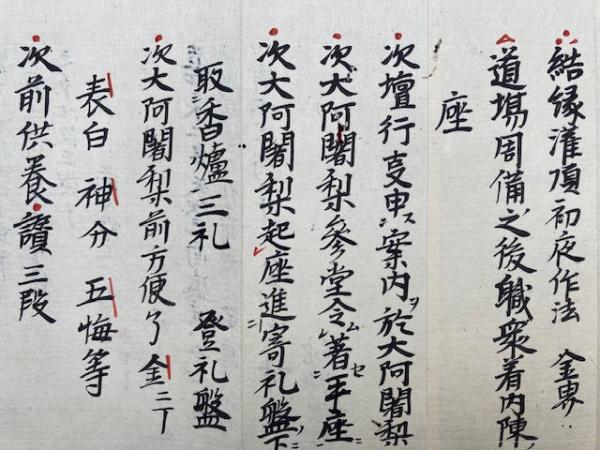 結縁灌頂初夜作法 金界
道場周備之後職衆着内陳
座
次壇行支申ス案内ヲ於大阿闍梨
次大阿闍梨参堂令ム著セ平座ニ
次大阿闍梨起座進寄礼盤下ニ
取香爐三礼 登礼盤
次大阿闍梨前方便了 金二丁
表白 神分 五悔等
次前供養讃三段